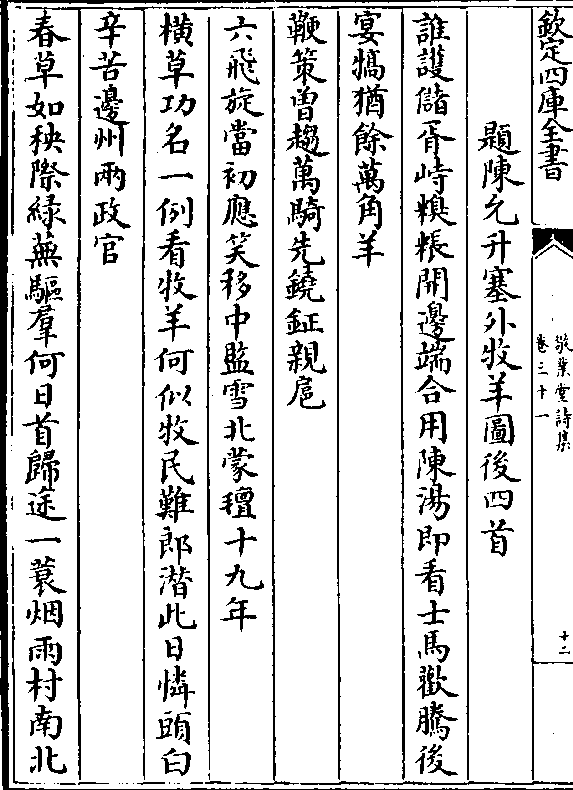 欽定四庫全書
敬業堂詩集
卷三十一
十二
題陳允升塞外牧羊圖後四首
誰護儲胥峙糗糧開邊端合用陳湯即看士馬歡騰後
宴犒猶餘萬角羊
鞭策曽趨萬騎先鐃鉦親扈
六飛旋當初應笑移中監雪北蒙氊十九年
橫草功名一例看牧羊何似牧民難郎潜此日憐頭白
辛苦邊州兩政官
春草如秧際緑蕪驅羣何日首歸途一蓑烟雨村南北